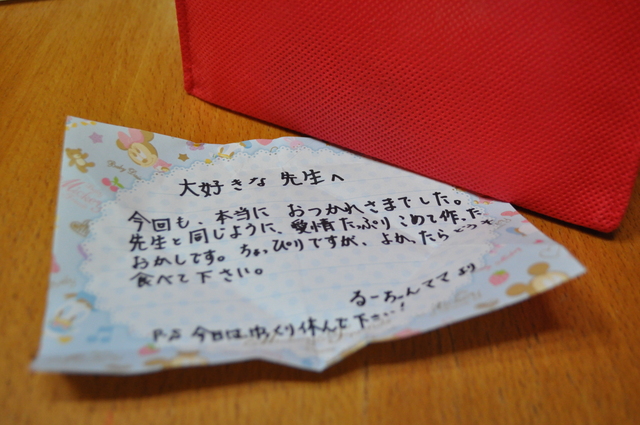 大好きな先生へ
今回も、本当に おつかれさまでした。
先生と同じように、愛情たっぷりこめて作った
おかしです。ちょっぴりですが、よかったらどうぞ
食べて下さい。
るーちゃんママより
P.S 今日はゆっくり休んで下さい!
Baby Days